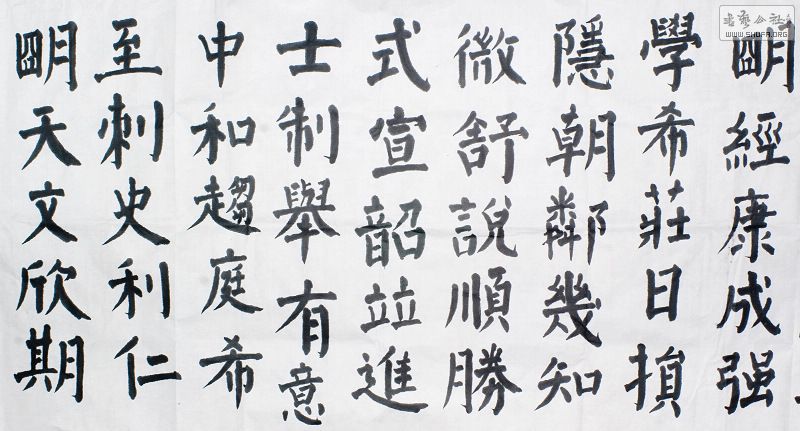 朙經康成强
學希莊日損
隱朝鄰幾知
微舒說順勝
式宣韶竝進
士制舉有意
中和趨庭希
至刺史利仁
朙天文欣期
书艺公社
WWW.SHUFA.ORG